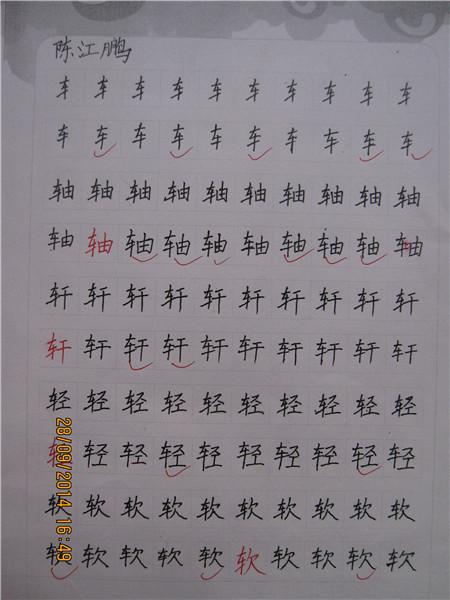 陈江鹏
车 车 车 车 车 车 车 车 车 车
车 车 车 车 车 车 车 车 车 车
轴 轴 轴 轴 轴 轴 轴 轴 轴 轴
轴 轴 轴 轴 轴 轴 轴 轴 轴 轴
轩 轩 轩 轩 轩 轩 轩 轩 轩 轩
轩 轩 轩 轩 轩 轩 轩 轩 轩 轩
轻 轻 轻 轻 轻 轻 轻 轻 轻 轻
轻 轻 轻 轻 轻 轻 轻 轻 轻 轻
软 软 软 软 软 软 软 软 软 软
软 软 软 软 软 软 软 软 软 软
28/09/2014 16:49